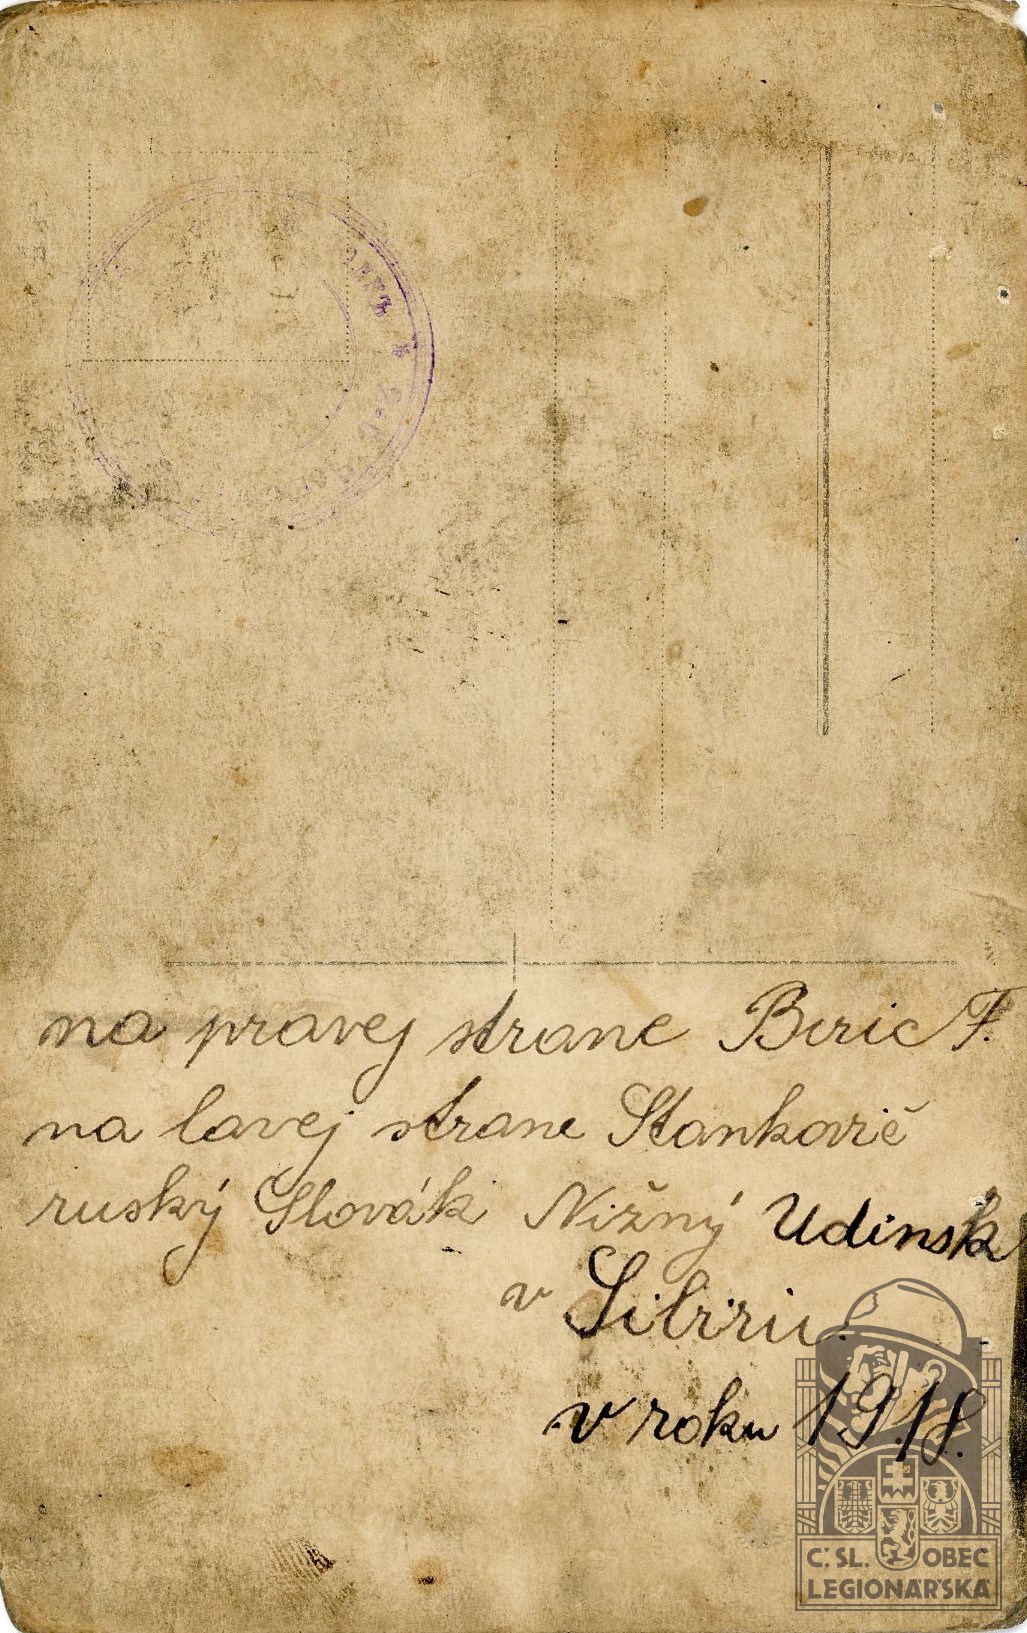 na pravej strane Biric F.
na lavej strane Stankovič
ruský Slovák Nižný Udinsk
v Sibiriu.
v roku 1918.
Č. SL. OBEC
LEGIONÁŘSKÁ